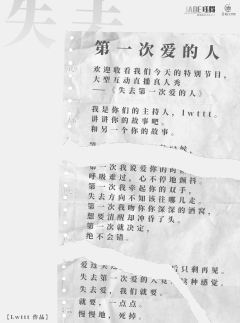 失去
第一次爱的人
欢迎收看我们今天的特别节目,
大型互动直播真人秀
——《失去第一次爱的人》
我是你们的主持人,lwttt.
讲讲你的故事吧。
和另一个你的故事。
第一次我说爱你的时候
呼吸难过,心不停地颤抖
第一次我牵起你的双手,
失去方向不知该往哪儿走,
第一次我吻你你深深的酒窝,
想要清醒却冲昏了头。
第一次就决定,
绝不会错。
后只剩再见。
失去第一次爱的人
这种感觉。
失去爱,我们就要。
就要,一点点。
慢慢地,死掉。
【Lwttt 作品】